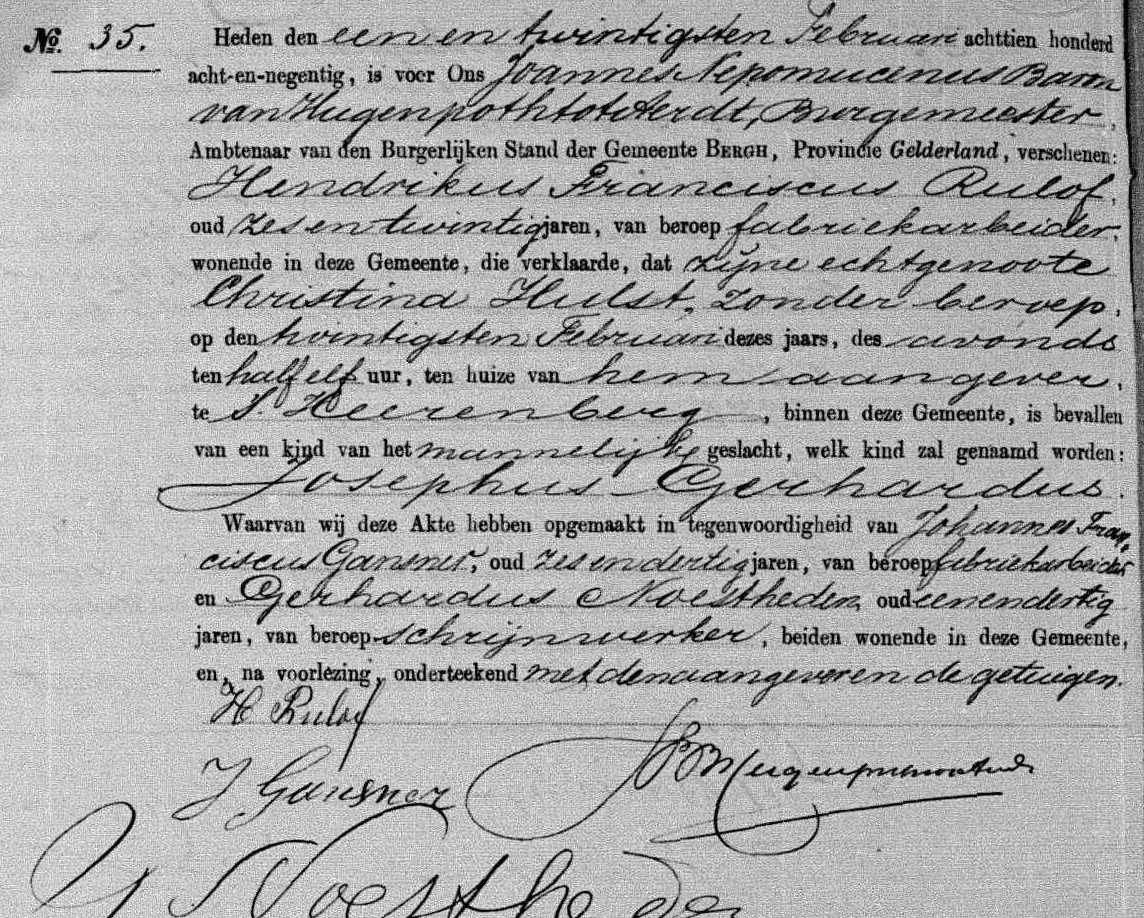 No. 35. Heden den een en twintigsten Februari achttien honderd
acht-en-negentig, is voor Ons Joannes Nepomucenus Baron
van Hugenpoth tot Aerdt, Burgemeester,
Ambtenaar van den Burgerlijken Stand der Gemeente BERGH, Provincie Gelderland, verschenen:
Hendrikus Franciscus Rulof,
oud zes en twintig jaren, van beroep fabriekarbeider,
wonende in deze Gemeente, die verklaarde, dat zijne echtgenoote
Christina Hulst, zonder beroep,
op den twintigsten Februari dezes jaars, des avonds
ten half elf uur, ten huize van hem aangever,
te s. Heerenberg, binnen deze Gemeente, is bevallen
van een kind van het mannelijke geslacht, welk kind zal genaamd worden:
Josephus Gerhardus.
Waarvan wij deze Akte hebben opgemaakt in tegenwoordigheid van Johannes Fran-
ciscus Gansner, oud zes en dertig jaren, van beroep fabriekarbeider
en Gerhardus Noestheden, oud een en dertig
jaren, van beroep schrijnwerker, beiden wonende in deze Gemeente,
en, na voorlezing, onderteekend met den aangever en de getuigen.
H Rulof
J Gansner
G Noestheden